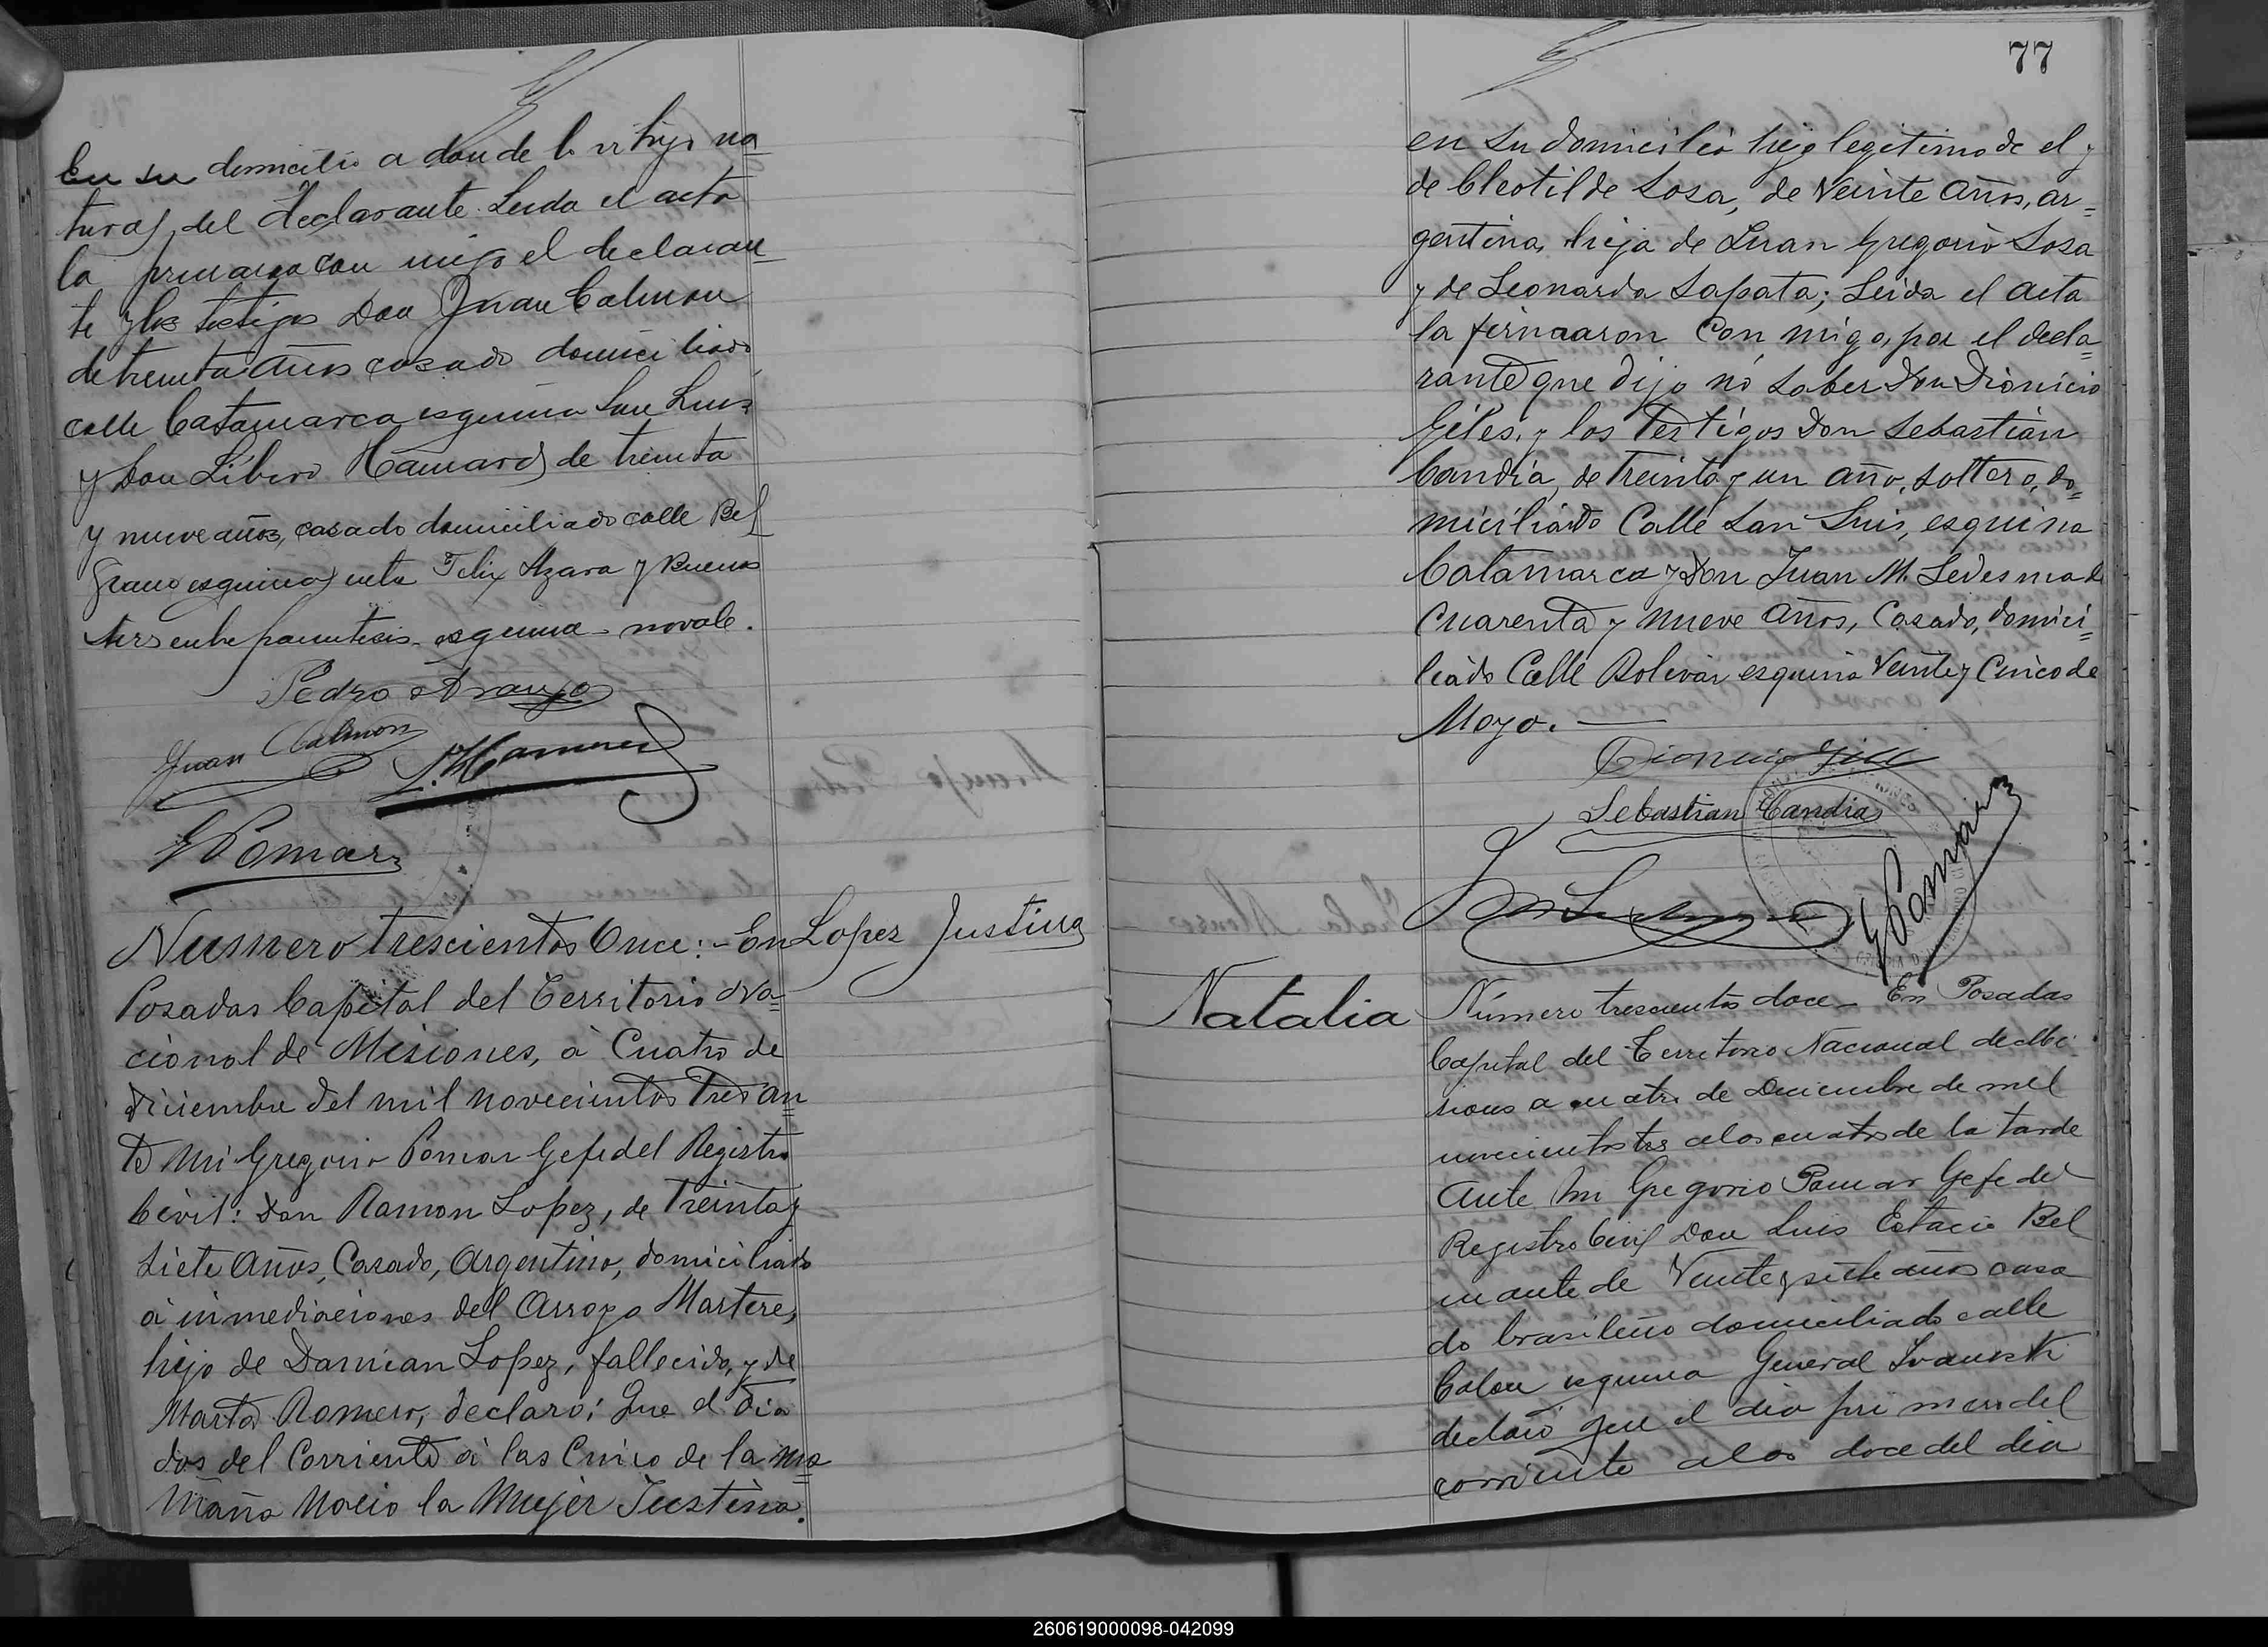 en su domicilio a donde hijo na=
tural del declarante. Leida el acta
la firmaron con migo el declaran=
te y los testigos Don Juan Calmon
de treinta años casado domiciliado
calle Catamarca esquina San Luis
y Don Libero Hamard de treinta
y nueve años, casado domiciliado calle Bel
grano esquina entre Felix Azara y Buenos
Aires entre parentesis esquina no vale.
Pedro Araujo
Juan Calmon
L. Hamard
G Pomar
Numero trescientos Once: - En
Lopez Justina
Posadas Capital del Territorio Na=
cional de Misiones, à Cuatro de
diciembre del mil novecientos Tres an=
te mi Gregorio Pomar Gefe del Registro
Civil: Don Ramon Lopez, de Treinta y
siete Años, Casado, Argentino, domiciliado
à inmediaciones del Arroyo Martere,
hijo de Damian Lopez, fallecido, y de
Marta Romero, declaró: Que el dia
dos del Corriente à las Cinco de la ma=
ñana Nació la Mujer Justina.
77
en su domicilio hija legitimo de el y
de Cleotilde Sosa, de Veinte años, ar=
gentina, hija de Juan Gregorio Sosa
y de Leonarda Sapata; Leida el acta
la firmaaron Con migo, por el decla=
rante que dijo no saber Don Dionicio
Giles, y los Testigos Don Sebastian
Candia, de treinta y un año, soltero, do=
miciliado Calle San Luis, esquina
Catamarca y Don Juan M. Ledesma de
Cuarenta y nueve años, Casado, domici=
liado Calle Bolivar esquina Veinte y Cinco de
Mayo.
Dionicio Gill
Sebastian Candia
G Pomar
Natalia
Número trescientos doce - En Posadas
Capital del Territorio Nacional de Mi
siones a cuatro de Diciembre de mil
novecientos tres a las cuatro de la tarde
ante mi Gregorio Pomar Gefe del
Registro Civil Don Luis Estacio Bel
mante de Veinte y siete años casa
do brasileño domiciliado calle
Colon esquina General
declaró que el dia primero del
corriente a las doce del dia
260619000098-042099